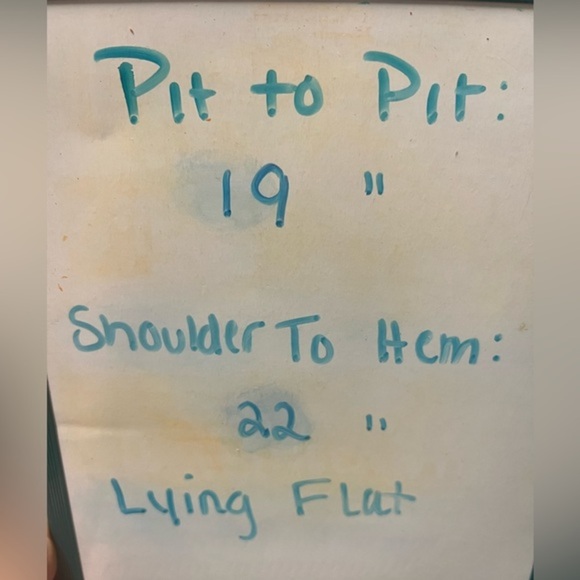 Pit to Pit:
19 "
Shoulder To Hem:
22 "
Lying Flat